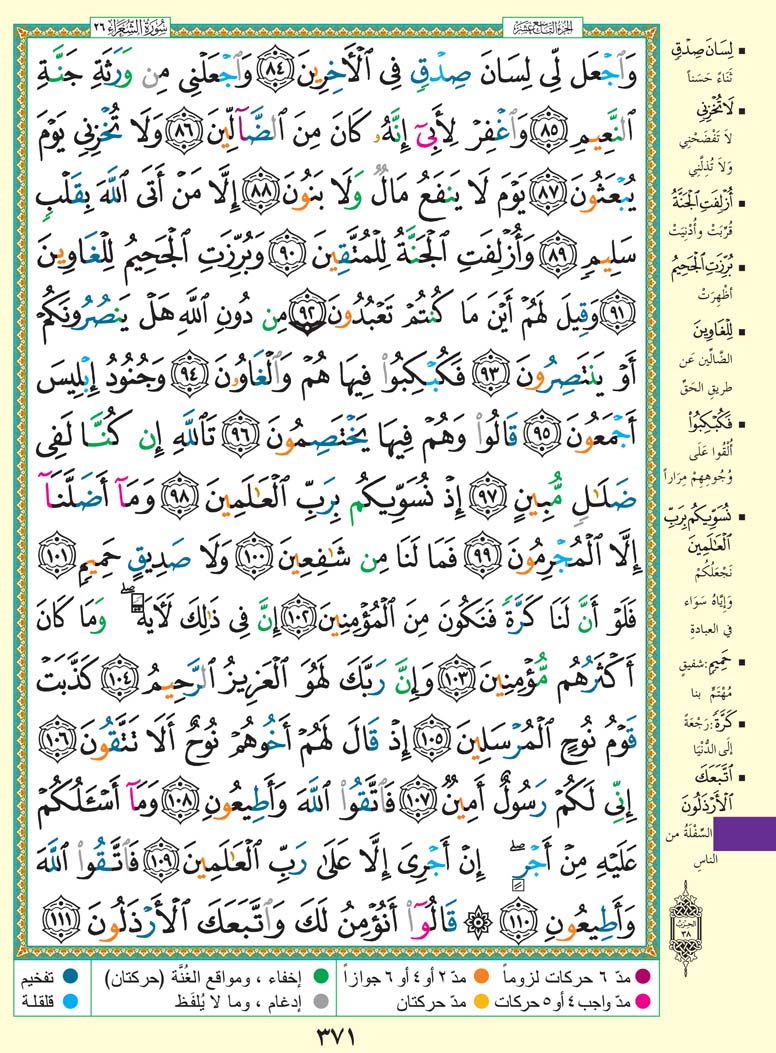 سُورَةُ الشُّعَرَاءِ ٢٦
الجزء التاسع عشر
وَاجْعَل لِّي لِسَانَ صِدْقٍ فِي الْآخِرِينَ ٨٤ وَاجْعَلْنِي مِن وَرَثَةِ جَنَّةِ
النَّعِيمِ ٨٥ وَاغْفِرْ لِأَبِي إِنَّهُ كَانَ مِنَ الضَّالِّينَ ٨٦ وَلَا تُخْزِنِي يَوْمَ
يُبْعَثُونَ ٨٧ يَوْمَ لَا يَنفَعُ مَالٌ وَلَا بَنُونَ ٨٨ إِلَّا مَنْ أَتَى اللَّهَ بِقَلْبٍ
سَلِيمٍ ٨٩ وَأُزْلِفَتِ الْجَنَّةُ لِلْمُتَّقِينَ ٩٠ وَبُرِّزَتِ الْجَحِيمُ لِلْغَاوِينَ
٩١ وَقِيلَ لَهُمْ أَيْنَ مَا كُنتُمْ تَعْبُدُونَ ٩٢ مِن دُونِ اللَّهِ هَلْ يَنصُرُونَكُمْ
أَوْ يَنتَصِرُونَ ٩٣ فَكُبْكِبُوا فِيهَا هُمْ وَالْغَاوُونَ ٩٤ وَجُنُودُ إِبْلِيسَ
أَجْمَعُونَ ٩٥ قَالُوا وَهُمْ فِيهَا يَخْتَصِمُونَ ٩٦ تَاللَّهِ إِن كُنَّا لَفِي
ضَلَالٍ مُّبِينٍ ٩٧ إِذْ نُسَوِّيكُم بِرَبِّ الْعَالَمِينَ ٩٨ وَمَا أَضَلَّنَا
إِلَّا الْمُجْرِمُونَ ٩٩ فَمَا لَنَا مِن شَافِعِينَ ١٠٠ وَلَا صَدِيقٍ حَمِيمٍ ١٠١
فَلَوْ أَنَّ لَنَا كَرَّةً فَنَكُونَ مِنَ الْمُؤْمِنِينَ ١٠٢ إِنَّ فِي ذَٰلِكَ لَآيَةً ۖ وَمَا كَانَ
أَكْثَرُهُم مُّؤْمِنِينَ ١٠٣ وَإِنَّ رَبَّكَ لَهُوَ الْعَزِيزُ الرَّحِيمُ ١٠٤ كَذَّبَتْ
قَوْمُ نُوحٍ الْمُرْسَلِينَ ١٠٥ إِذْ قَالَ لَهُمْ أَخُوهُمْ نُوحٌ أَلَا تَتَّقُونَ ١٠٦
إِنِّي لَكُمْ رَسُولٌ أَمِينٌ ١٠٧ فَاتَّقُوا اللَّهَ وَأَطِيعُونِ ١٠٨ وَمَا أَسْأَلُكُمْ
عَلَيْهِ مِنْ أَجْرٍ ۖ إِنْ أَجْرِيَ إِلَّا عَلَىٰ رَبِّ الْعَالَمِينَ ١٠٩ فَاتَّقُوا اللَّهَ
وَأَطِيعُونِ ١١٠ ۞ قَالُوا أَنُؤْمِنُ لَكَ وَاتَّبَعَكَ الْأَرْذَلُونَ ١١١
▪ لِسَانَ صِدْقٍ
ثَنَاءً حَسَناً
▪ لَا تُخْزِنِي
لَا تَفْضَحْنِي
وَلَا تُذِلَّنِي
▪ أُزْلِفَتِ الْجَنَّةُ
قُرِّبَتْ وأُدْنِيَتْ
▪ بُرِّزَتِ الْجَحِيمُ
أُظْهِرَتْ
▪ لِلْغَاوِينَ
الضَّالِّين عَن
طَرِيقِ الحَقِّ
▪ فَكُبْكِبُوا
أُلْقُوا عَلَى
وُجُوهِهِمْ مِرَاراً
▪ نُسَوِّيكُم بِرَبِّ
الْعَالَمِينَ
نَجْعَلُكُمْ
وَإِيَّاهُ سَوَاء
في العبادةِ
▪ حَمِيمٍ: شفيقٍ
مُهْتَمٍّ بنا
▪ كَرَّةً: رَجْعَةً
إلَى الدُّنْيَا
▪ اتَّبَعَكَ
الْأَرْذَلُونَ
السِّفْلَةُ من
الناسِ
الحزب
٣٨
مدّ ٦ حركات لزوماً
مدّ ٢ أو ٤ أو ٦ جوازاً
إخفاء ، ومواقع الغُنَّة (حركتان)
تفخيم
مدّ واجب ٤ أو ٥ حركات
مدّ حركتان
إدغام ، وما لا يُلفَظ
قلقلة
٣٧١